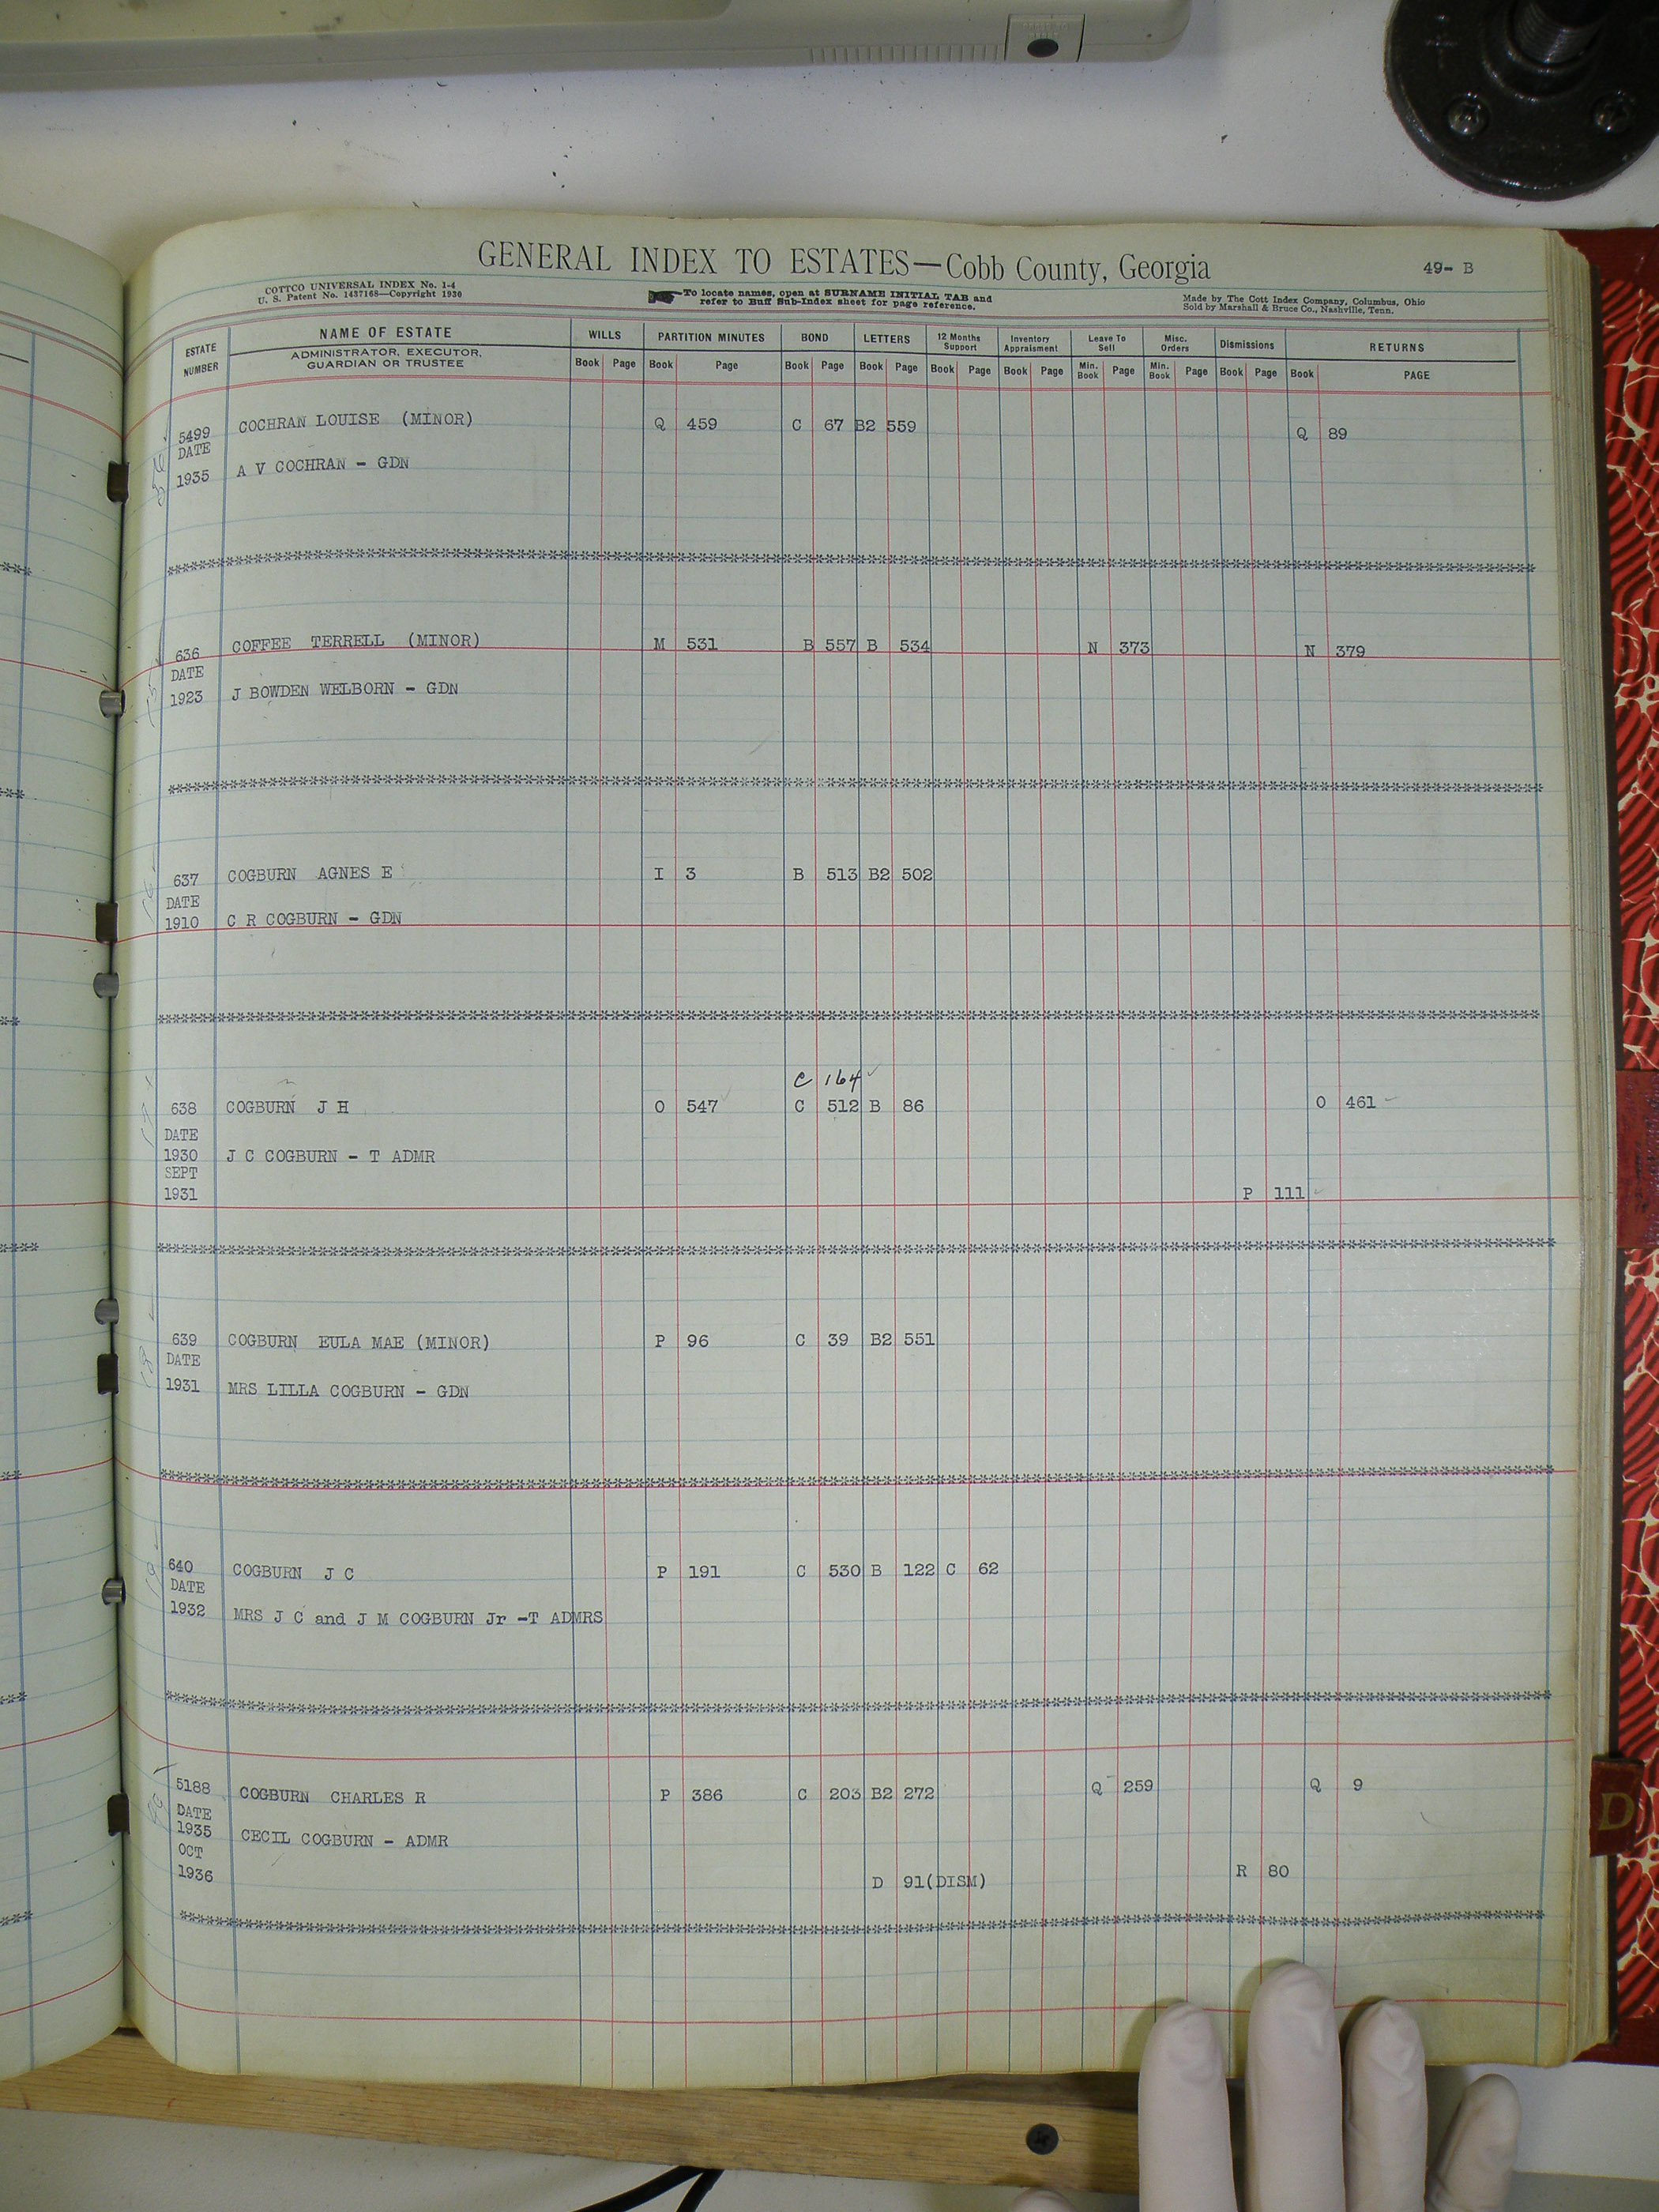 GENERAL INDEX TO ESTATES—Cobb County, Georgia
49- B
COTTCO UNIVERSAL INDEX No. 1-4
U. S. Patent No. 1437168—Copyright 1930
To locate names, open at SURNAME INITIAL TAB and
refer to Buff Sub-Index sheet for page reference.
Made by The Cott Index Company, Columbus, Ohio
Sold by Marshall & Bruce Co., Nashville, Tenn.
ESTATE NUMBER
NAME OF ESTATE
ADMINISTRATOR, EXECUTOR,
GUARDIAN OR TRUSTEE
WILLS PARTITION MINUTES BOND LETTERS 12 Months Support Inventory Appraisment Leave To Sell Misc. Orders Dismissions RETURNS
Book Page Book Page Book Page Book Page Book Page Book Page Min. Book Page Min. Book Page Book Page Book PAGE
5499 COCHRAN LOUISE (MINOR) Q 459 C 67 B2 559 Q 89
DATE
1935 A V COCHRAN - GDN
636 COFFEE TERRELL (MINOR) M 531 B 557 B 534 N 373 N 379
DATE
1923 J BOWDEN WELBORN - GDN
637 COGBURN AGNES E I 3 B 513 B2 502
DATE
1910 C R COGBURN - GDN
C 164
638 COGBURN J H O 547 C 512 B 86 O 461
DATE
1930 J C COGBURN - T ADMR
SEPT
1931 P 111
639 COGBURN EULA MAE (MINOR) P 96 C 39 B2 551
DATE
1931 MRS LILLA COGBURN - GDN
640 COGBURN J C P 191 C 530 B 122 C 62
DATE
1932 MRS J C and J M COGBURN Jr -T ADMRS
5188 COGBURN CHARLES R P 386 C 203 B2 272 Q 259 Q 9
DATE
1935 CECIL COGBURN - ADMR
OCT
1936 D 91(DISM) R 80
D